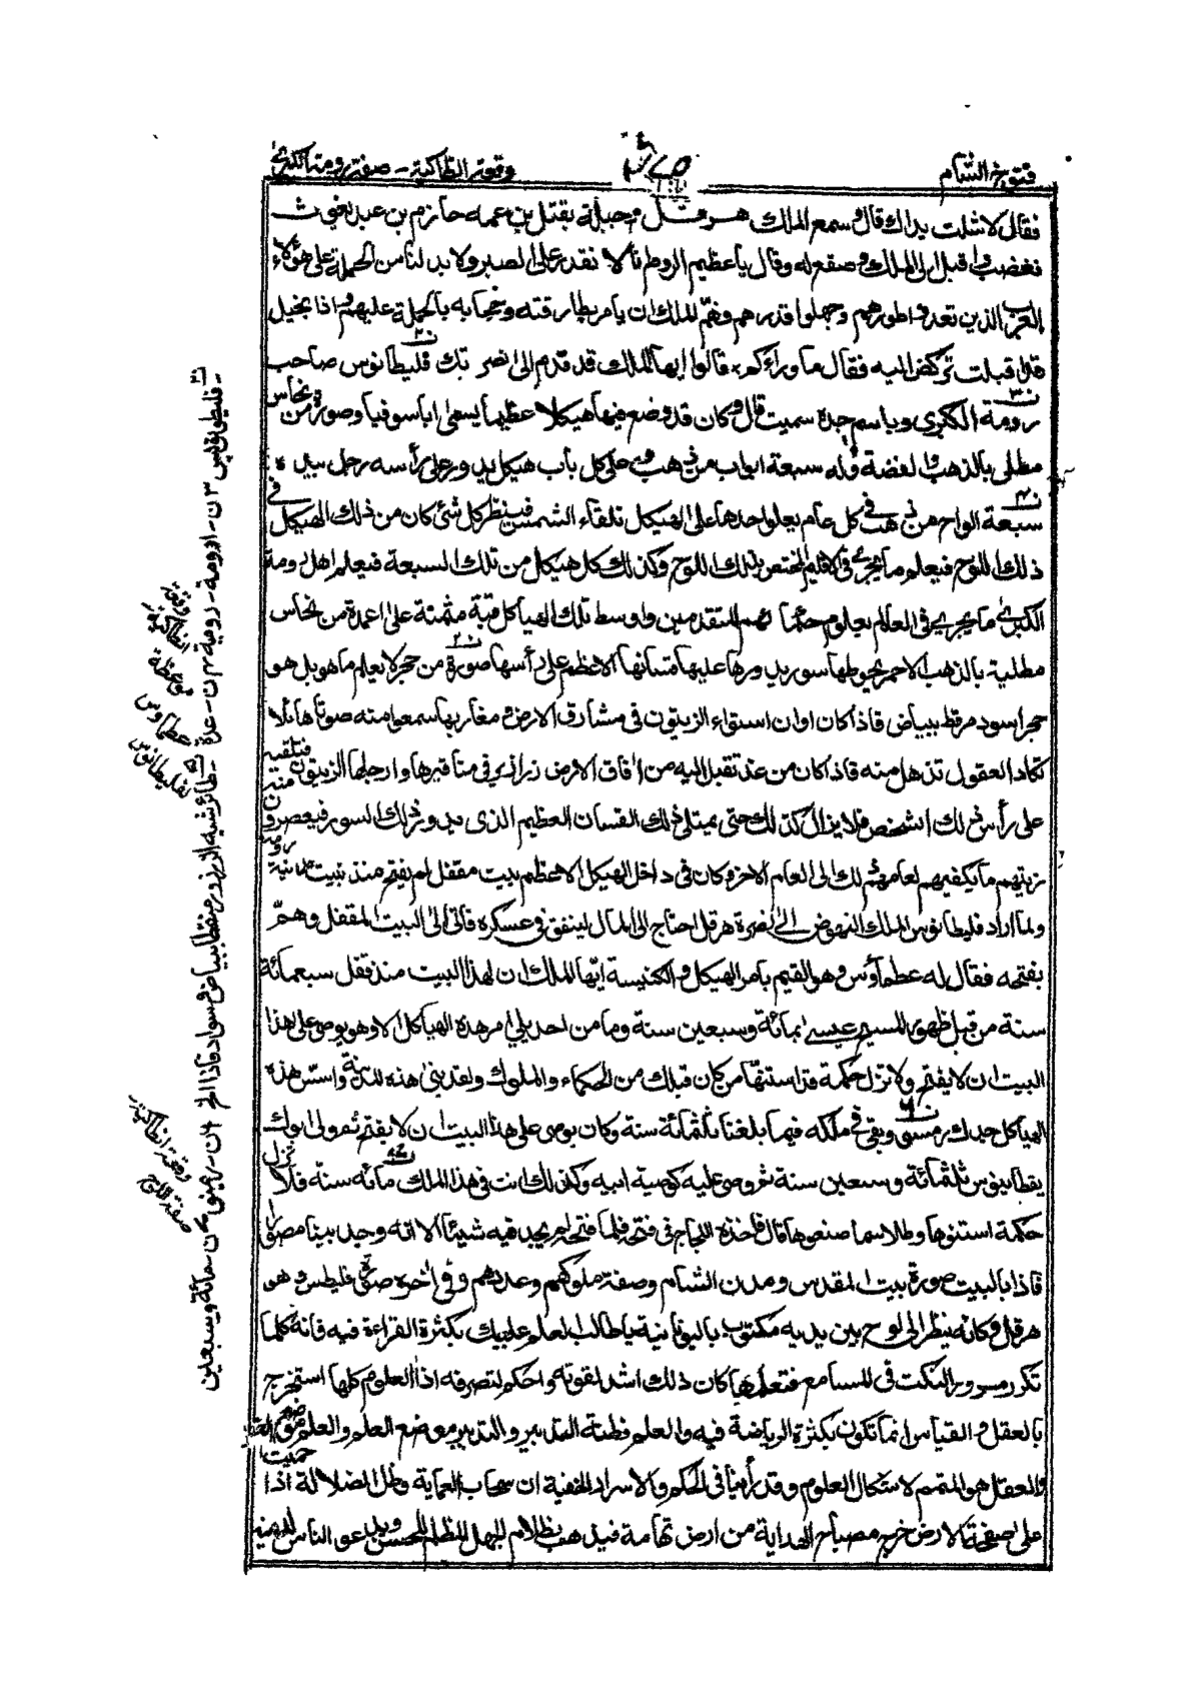 فتوح الشام
وقعة انطاكية - صفة رومة الكبرى
فقال لا شلت يداك قال وسمع الملك هرقل جبلة بقتل بن عمه حازم بن عبد يغوث
فغضب واقبل الى الملك وصقع له وقال يا عظيم الروم انا لا نقدر على الصبر ولا بد لنا من الحملة على هؤلاء
العرب الذين تعدوا طورهم وجهلوا قدرهم فهمّ الملك ان يامر بطارقته وحجابه بالحملة عليهم واذا بخيل
قد اقبلت تركض اليه فقال ما وراءكم قالوا ايها الملك قد قدم الى نصرتك فليطانوس صاحب
رومة الكبرى وباسم جده سميت قال وكان قد وضع فيها هيكلا عظيما يسمى اباسوفيا وصورة من نحاس
مطلى بالذهب والفضة وله سبعة ابواب من ذهب وعلى كل باب هيكل يدور على رأسه رجل بيده
سبعة الواح من ذهب في كل عام يعلوا احدها على الهيكل تلقاء الشمس فينظر كل شئ كان من ذلك الهيكل في
ذلك اللوح فيعلم ما يجرى في الاقليم المختص بذلك اللوح وكذلك كل هيكل من تلك السبعة فيعلم اهل رومة
الكبرى ما يجرى في العالم بعلوم حكمائهم المتقدمين واوسط تلك الهياكل قبة مثمنة على اعمدة من نحاس
مطلية بالذهب الاحمر يحوطها سور يدورها عليها مثالها الاعظم على رأسها صورة من حجر لا يعلم ما هو بل هو
حجر اسود مرقط ببياض فاذا كان اوان استواء الزيتون في مشارق الارض ومغاربها سمعوا منه صوتا هائلا
تكاد العقول تذهل منه فاذا كان من غد تقبل اليه من افاق الارض زرازير في مناقيرها وارجلها الزيتون فتلقيه
على رأس ذلك الشخص فلا يزال كذلك حتى يمتلى ذلك الفسان العظيم الذى يدور ذلك السور فيعصرون منه
زيتهم ما يكفيهم لعامهم ذلك الى العام الاخر وكان في داخل الهيكل الاعظم بيت مقفل لم يفتح منذ بنيت مدينة رومة
ولما اراد فليطانوس الملك النهوض الى نصرة هرقل احتاج الى المال لينفق في عسكره فاتى الى البيت المقفل وهمّ
بفتحه فقال له عطماؤس وهو القيم بامر الهيكل والكنيسة ايها الملك ان لهذا البيت منذ قفل سبعمائة
سنة من قبل ظهور المسيح عيسى بمائة وسبعين سنة وما من احد يلي امر هذه الهياكل الا وهو يوصى على هذا
البيت ان لا يفتح ولا تزل حكمة قد استنها من كان قبلك من الحكماء والملوك ولقد بنى هذه المدينة واسس هذه
الهياكل جدك برمسق وبقى في ملكه فيما بلغنا ثلثمائة سنة وكان يوصى على هذا البيت ان لا يفتح ثم ولى ابوك
يقطاينوس ثلثمائة وسبعين سنة ثم وصى عليه كوصية ابيه وكذلك انت في هذا الملك مائة سنة فلا تزل
حكمة استنوها وطلاسما صنعوها قال فاخذه اللجاج في فتحه فلما فتحه لم يجد فيه شيئا الا انه وجد بيتا مصورا
فاذا بالبيت صورة بيت المقدس ومدن الشام وصفة ملوكهم وعددهم وفي اخره صورة فليطس وهو
هرقل وكانه ينظر الى لوح بين يديه مكتوب باليونانية يا طالب العلم عليك بكثرة القراءة فيه فانه كلما
تكرر مرور النكت في المسامع فتعلمها كان ذلك اشد لقوته واحكم لتصرفه اذ العلوم كلها استخرج
بالعقل والقياس انما تكون بكثرة الرياضة فيه والعلم فطنة التدبير والتدبير موضع العلم والعلم
والعقل هو المتمم لاستكمال العلوم وقد رأينا في الحكم والاسرار الخفية ان سحاب العماية وظل الضلالة اذا خيمت
على صفحة الارض خرج مصباح الهداية من ارض تهامة فيذهب بظلام الجهل المظلم للحسن ويدعو الناس للدينين
ن - فليطونوس ٣ن - ارومة - رومية ٣ن - عدة
ن - طائر شبه الزرزور منقط ببياض وسواد فاذا الخ ٦ن - رعينوق ٤ن - مائة وسبعين
وقعة انطاكية
صفة اللوح